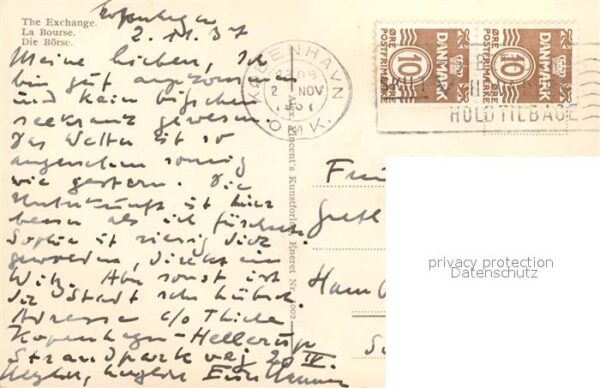 The Exchange.
La Bourse.
Die Börse.
Kopenhagen
2. 11. 37
Meine Lieben, Ich
bin gut angekommen
und kein bißchen
seekrank gewesen.
Das Wetter ist so
angenehm sonnig
wie gestern. Die
Unterkunft ist hier
besser als ich fürchtete.
Sophie ist riesig dick
geworden, direkt ein
Witz. Aber sonst ist
die Stadt sehr hübsch.
Adresse c/o Thiele
Kopenhagen-Hellerup
Strandparkvej 20 IV.
KØBENHAVN
2 NOV
1937
O.M.K.
Alex Vincent's Kunstforlag Eneret Nr.
DANMARK
10
ØRE
POSTFRIMÆRKE
DANMARK
10
ØRE
POSTFRIMÆRKE
HOLD TILBAGE
privacy protection
Datenschutz